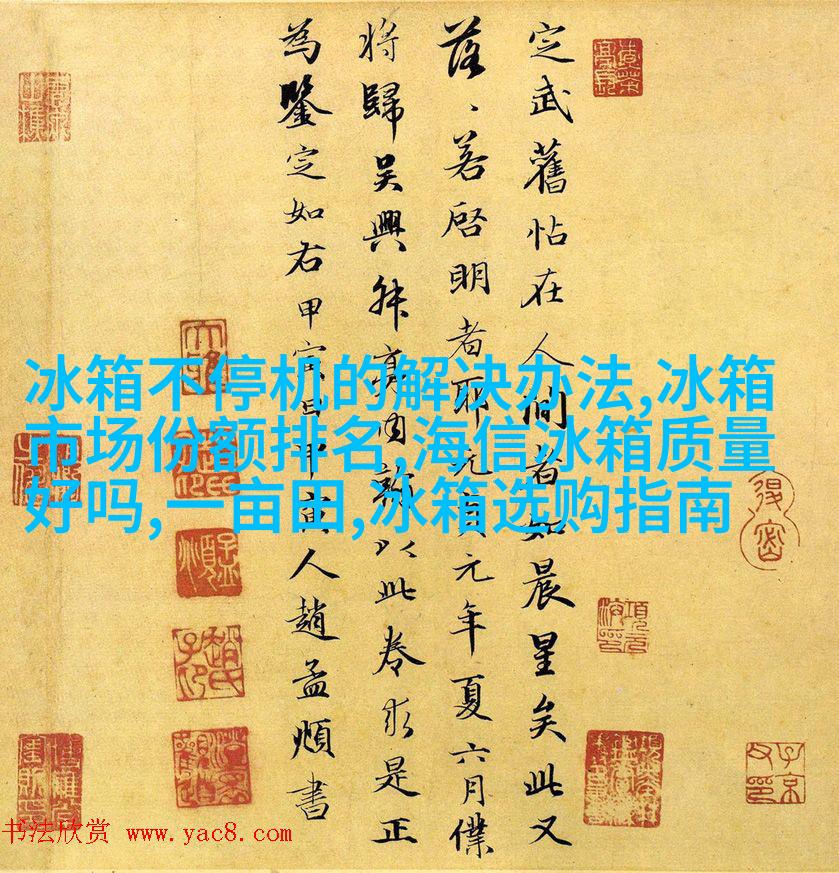 定武舊帖在人間者如晨星矣此又
落、若啓明者耶元貞元年夏六月僕
將歸吳興叔亮內翰以此卷求是正
為鑒定如右甲寅日甲寅人趙孟頫書
冰箱不停机的解决办法,冰箱
市场份额排名,海信冰箱质量
好吗,一亩田,冰箱选购指南
书法欣赏 www.yac8.com